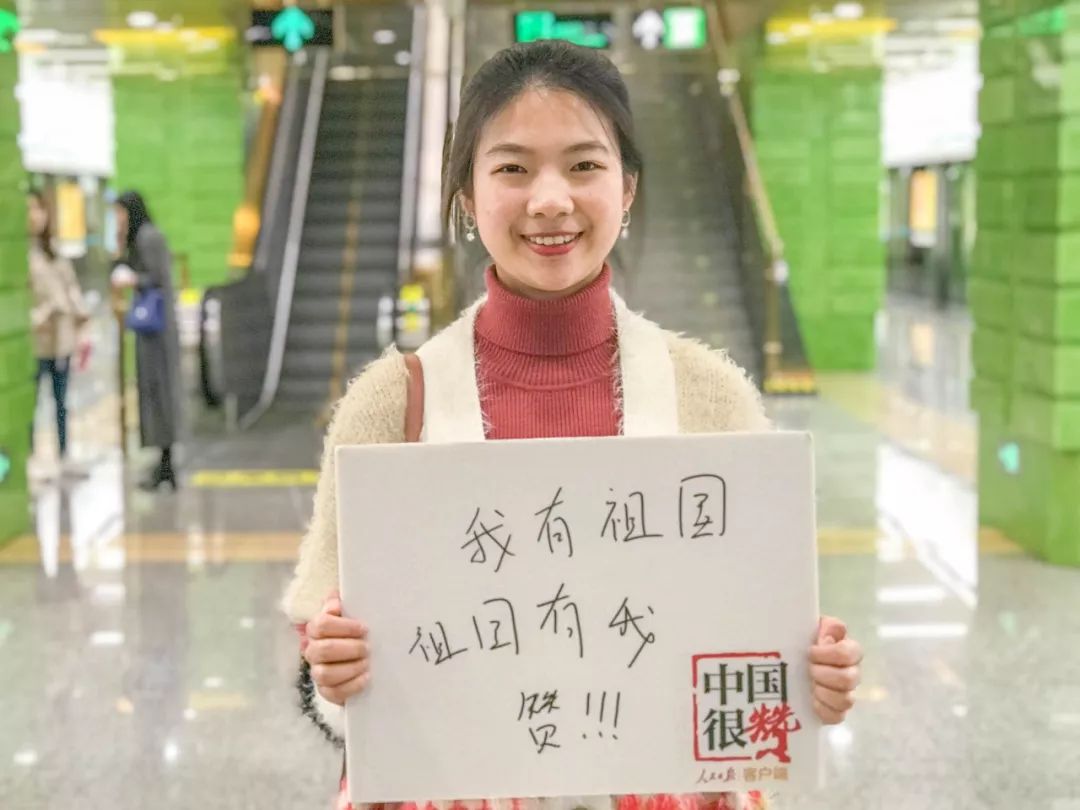 我有祖国
祖国有我
赞!!!
中国
很赞
人民日报 客户端